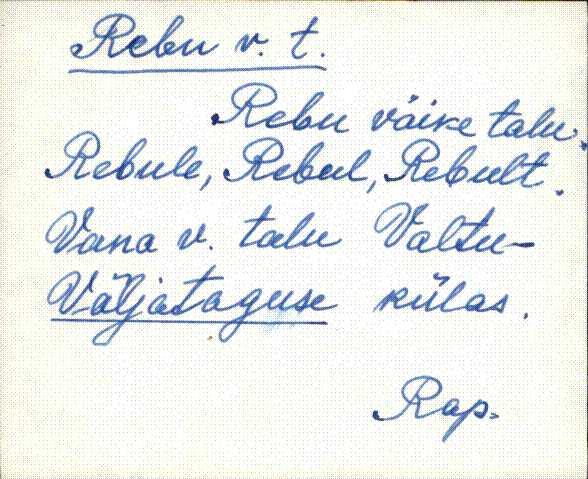 Rebu v. t.
Rebu väike talu.
Rebule, Rebul, Rebult.
Vana v. talu Valtu-
Väljataguse külas.
Rap.